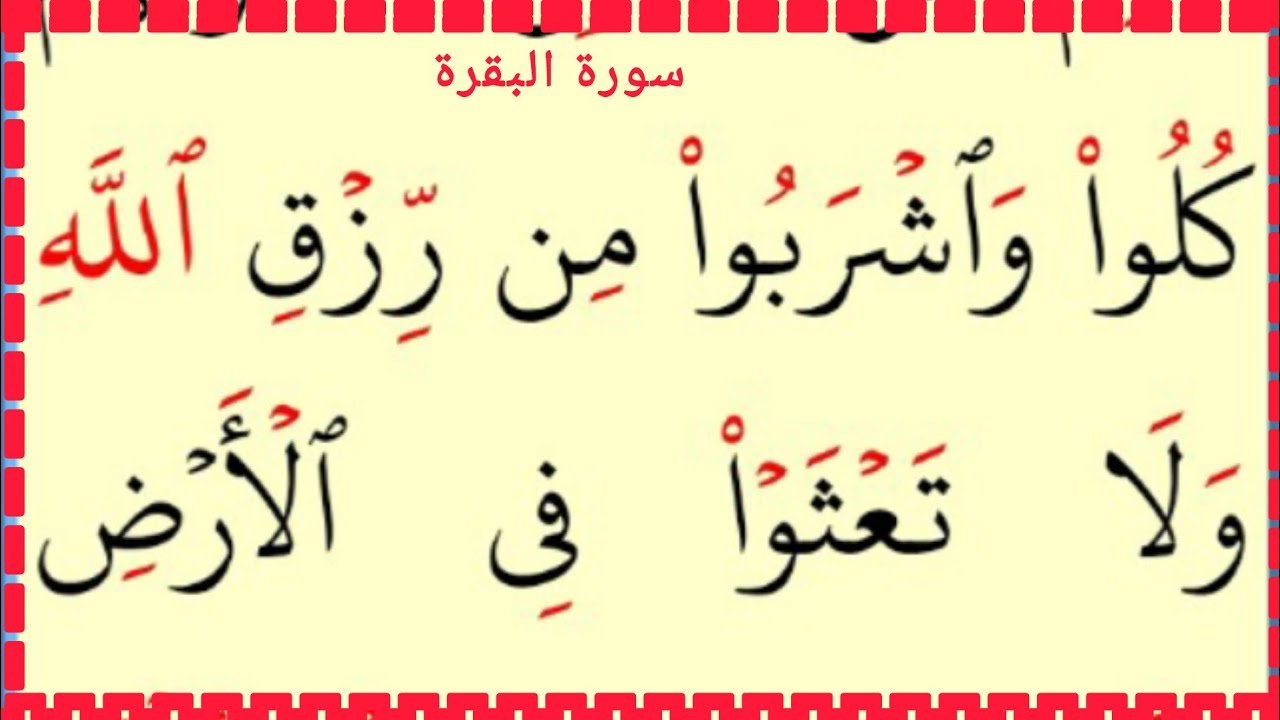 سورة البقرة
كُلُوا۟ وَٱشْرَبُوا۟ مِن رِّزْقِ ٱللَّهِ
وَلَا تَعْثَوْا۟ فِى ٱلْأَرْضِ